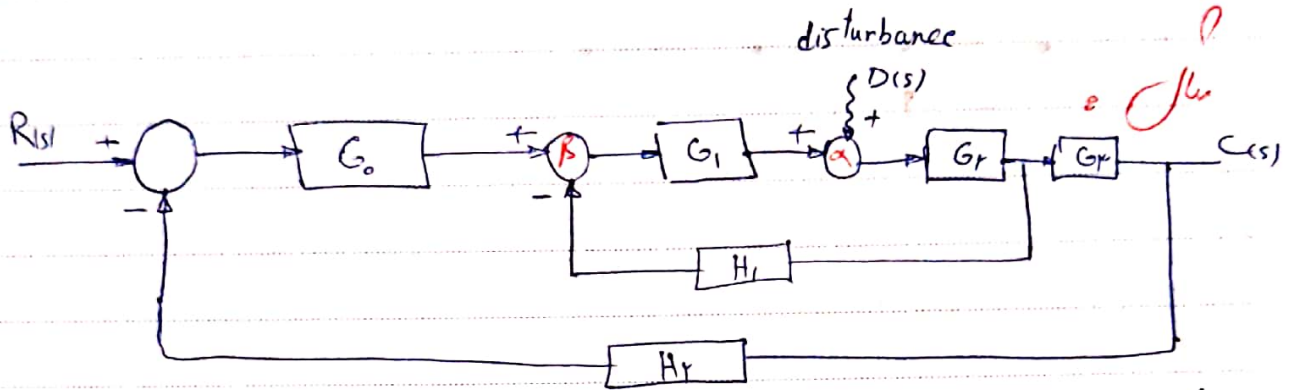 مثال :
disturbance
D(s)
+
R(s) + G₀ + β G₁ + α G۲ G۳ C(s)
− −
H₁
H۲